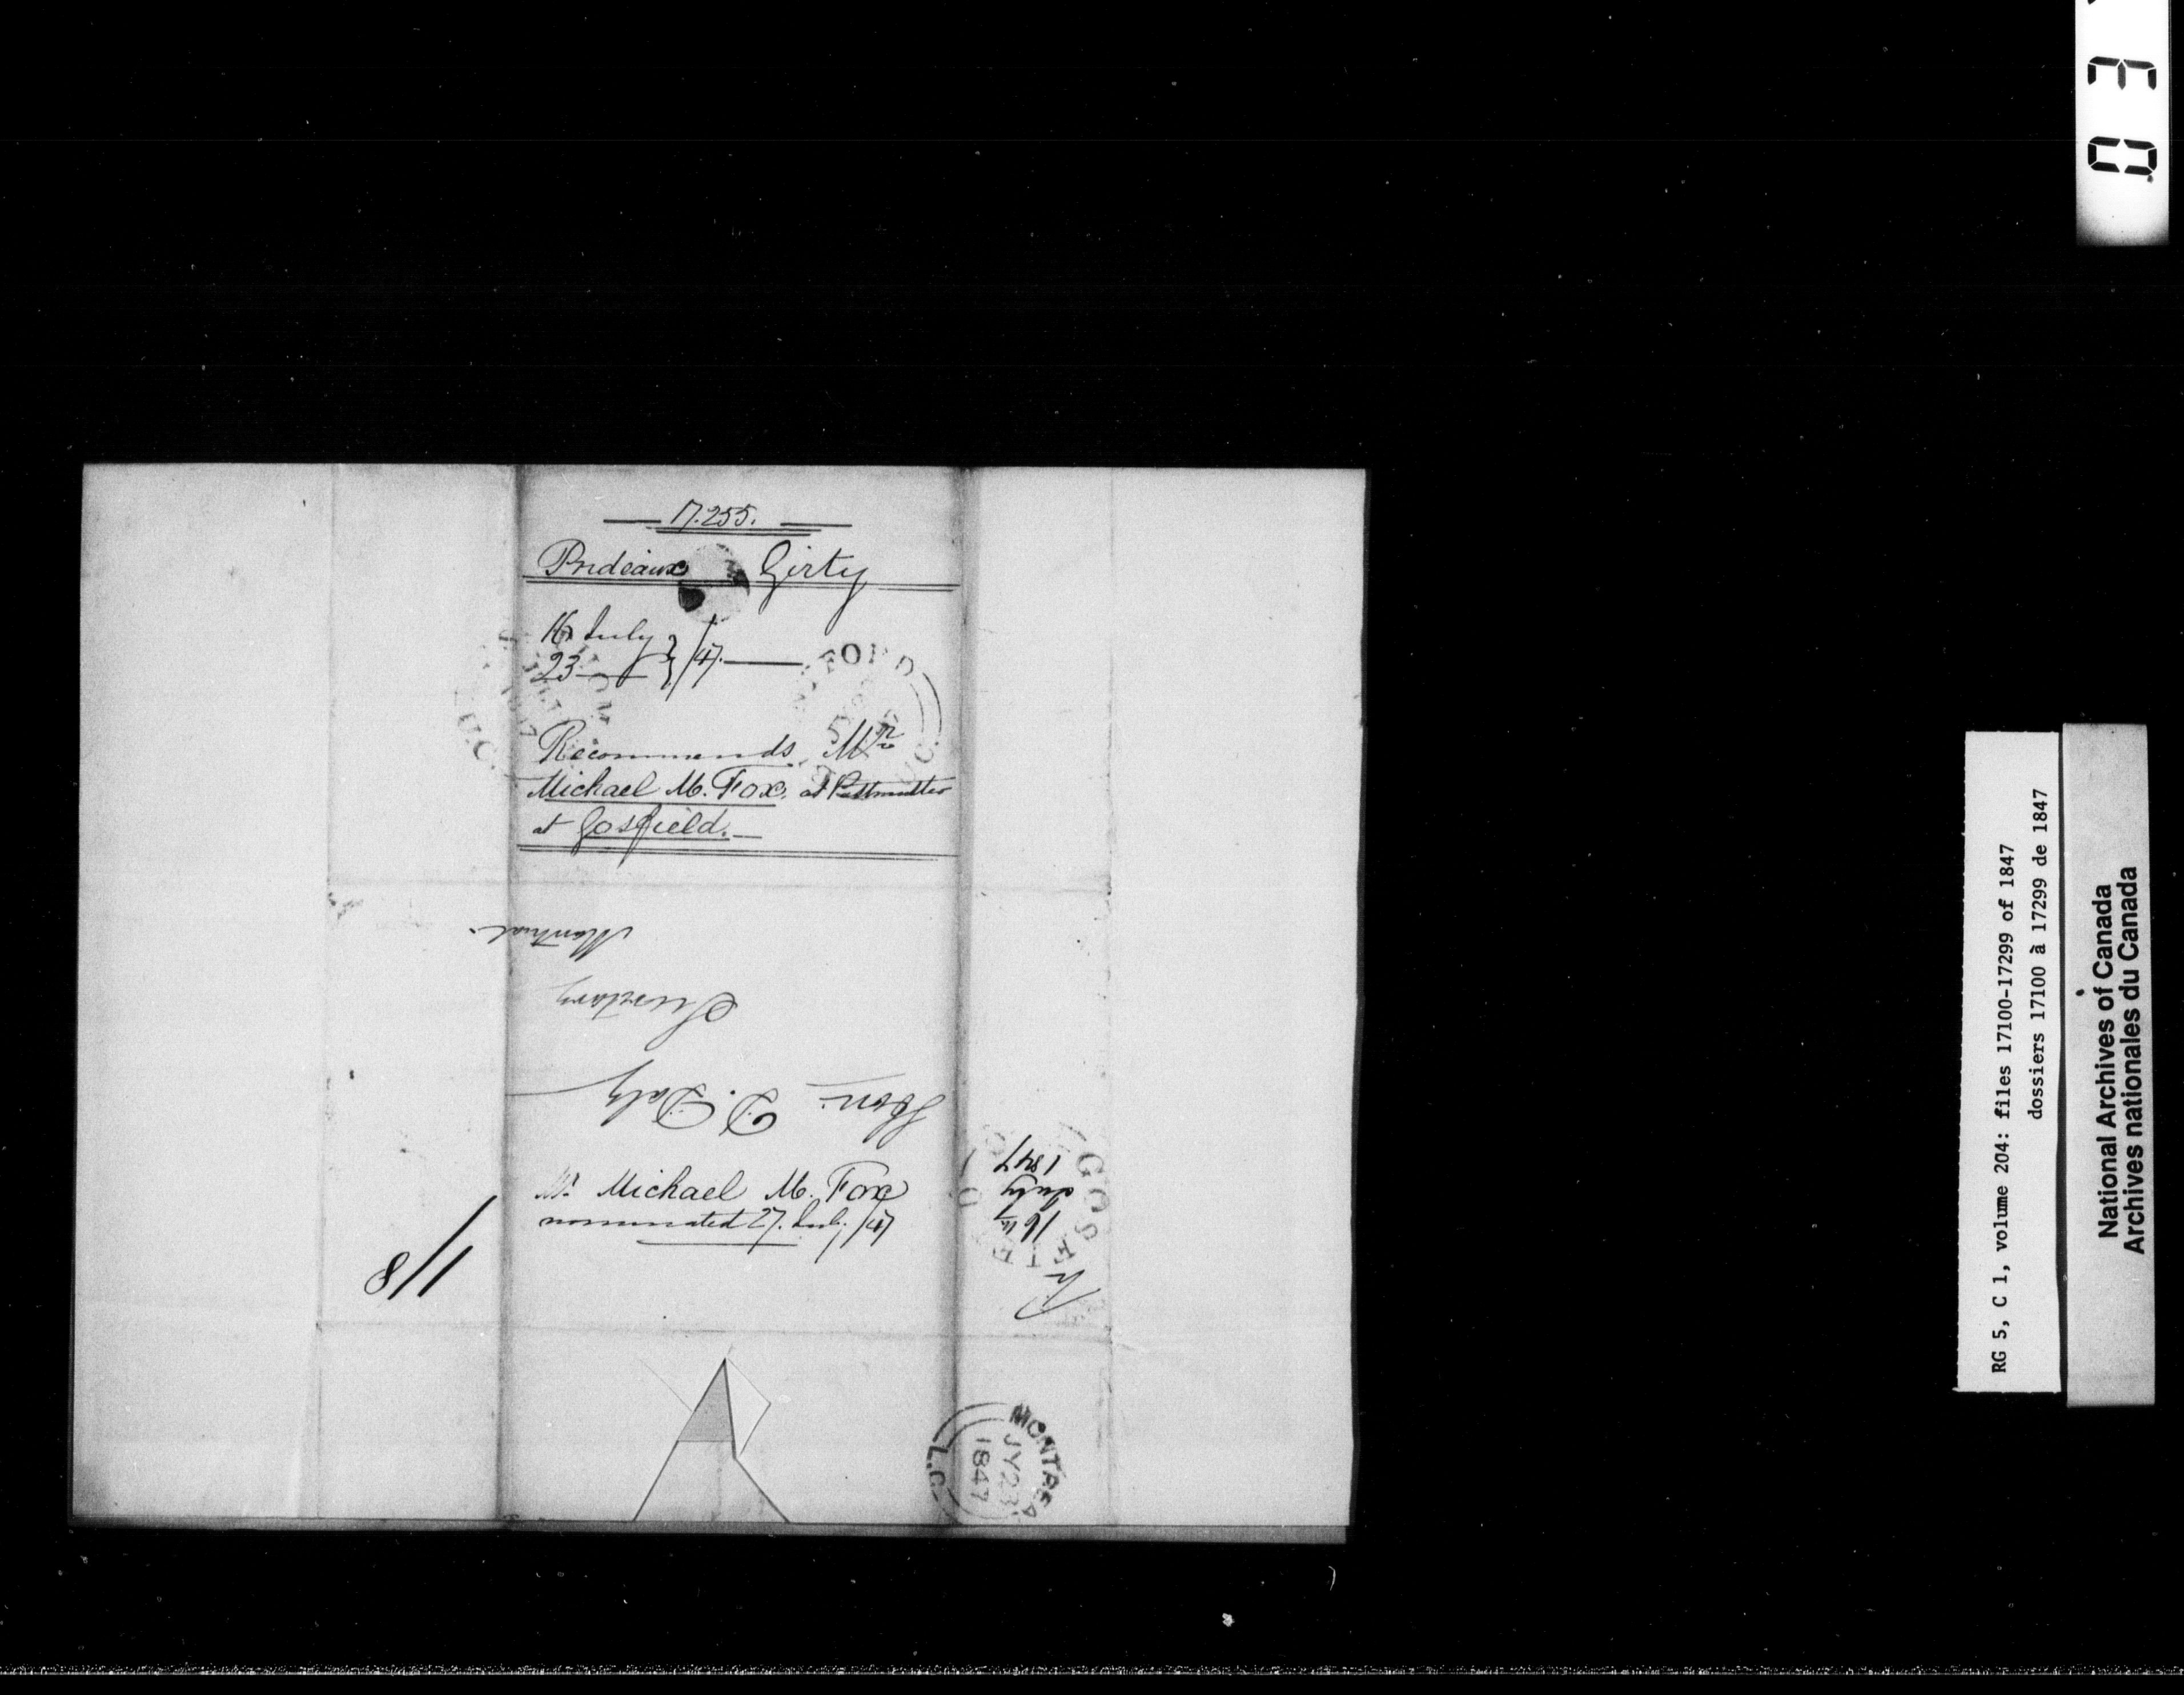 17.255.
Prideaux Girty
16 July
23 — } /47. —
Recommends Mr
Michael M. Fox, as Postmaster
at Gosfield. —
Montreal
Secretary
Hon: D. Daly
Mr Michael M. Fox
nominated 27. July /47
1/8
16th
July
1847
GOSFIE
MONTREA
JY 23
1847
L.C.
RG 5, C 1, volume 204: files 17100-17299 of 1847
dossiers 17100 à 17299 de 1847
National Archives of Canada
Archives nationales du Canada